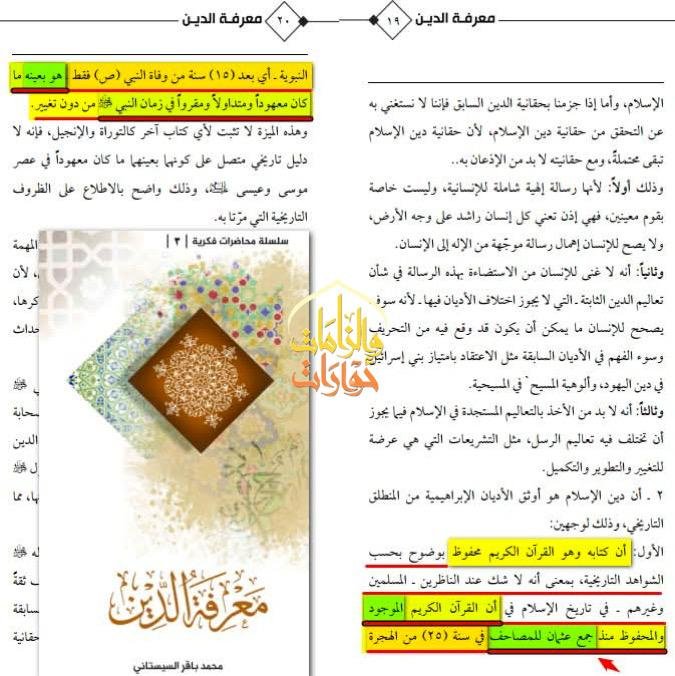 معرفة الدين
١٩
الإسلام، وأما إذا جزمنا بحقانية الدين السابق فإننا لا نستغني به
عن التحقق من حقانية دين الإسلام، لأن حقانية دين الإسلام
تبقى محتملة، ومع حقانيته لا بد من الإذعان به..
وذلك أولاً: لأنها رسالة إلهية شاملة للإنسانية، وليست خاصة
بقوم معينين، فهي إذن تعني كل إنسان راشد على وجه الأرض،
ولا يصح للإنسان إهمال رسالة موجّهة من الإله إلى الإنسان.
وثانياً: أنه لا غنى للإنسان من الاستضاءة بهذه الرسالة في شأن
تعاليم الدين الثابتة ـ التي لا يجوز اختلاف الأديان فيها ـ لأنه سوف
يصحح للإنسان ما يمكن أن يكون قد وقع فيه من التحريف
وسوء الفهم في الأديان السابقة مثل الاعتقاد بامتياز بني إسرائيل
في دين اليهود، وألوهية المسيح في المسيحية.
وثالثاً: أنه لا بد من الأخذ بالتعاليم المستجدة في الإسلام فيما يجوز
أن تختلف فيه تعاليم الرسل، مثل التشريعات التي هي عرضة
للتغيير والتطوير والتكميل.
٢ ـ أن دين الإسلام هو أوثق الأديان الإبراهيمية من المنطلق
التاريخي، وذلك لوجهين:
الأول: أن كتابه وهو القرآن الكريم محفوظ بوضوح بحسب
الشواهد التاريخية، بمعنى أنه لا شك عند الناظرين ـ المسلمين
وغيرهم ـ في تاريخ الإسلام في أن القرآن الكريم الموجود
والمحفوظ منذ جمع عثمان للمصاحف في سنة (٢٥) من الهجرة
٢٠
معرفة الدين
النبوية ـ أي بعد (١٥) سنة من وفاة النبي (ص) فقط ـ هو بعينه ما
كان معهوداً ومتداولاً ومقروراً في زمان النبي ﷺ من دون تغيير.
وهذه الميزة لا تثبت لأي كتاب آخر كالتوراة والإنجيل، فإنه لا
دليل تاريخي متصل على كونهما بعينهما ما كان معهوداً في عصر
موسى وعيسى، وذلك واضح بالاطلاع على الظروف
التاريخية التي مرّتا به.
المهمة
لأن
كرها،
حداث
ﷺ
صحابة
الدين
ﷺ
ها، مما
ﷺ
ثقةً
سابقة
حقانية
سلسلة محاضرات فكرية | ٣
معرفة الدين
محمد باقر السيستاني
والزامات
حوارات